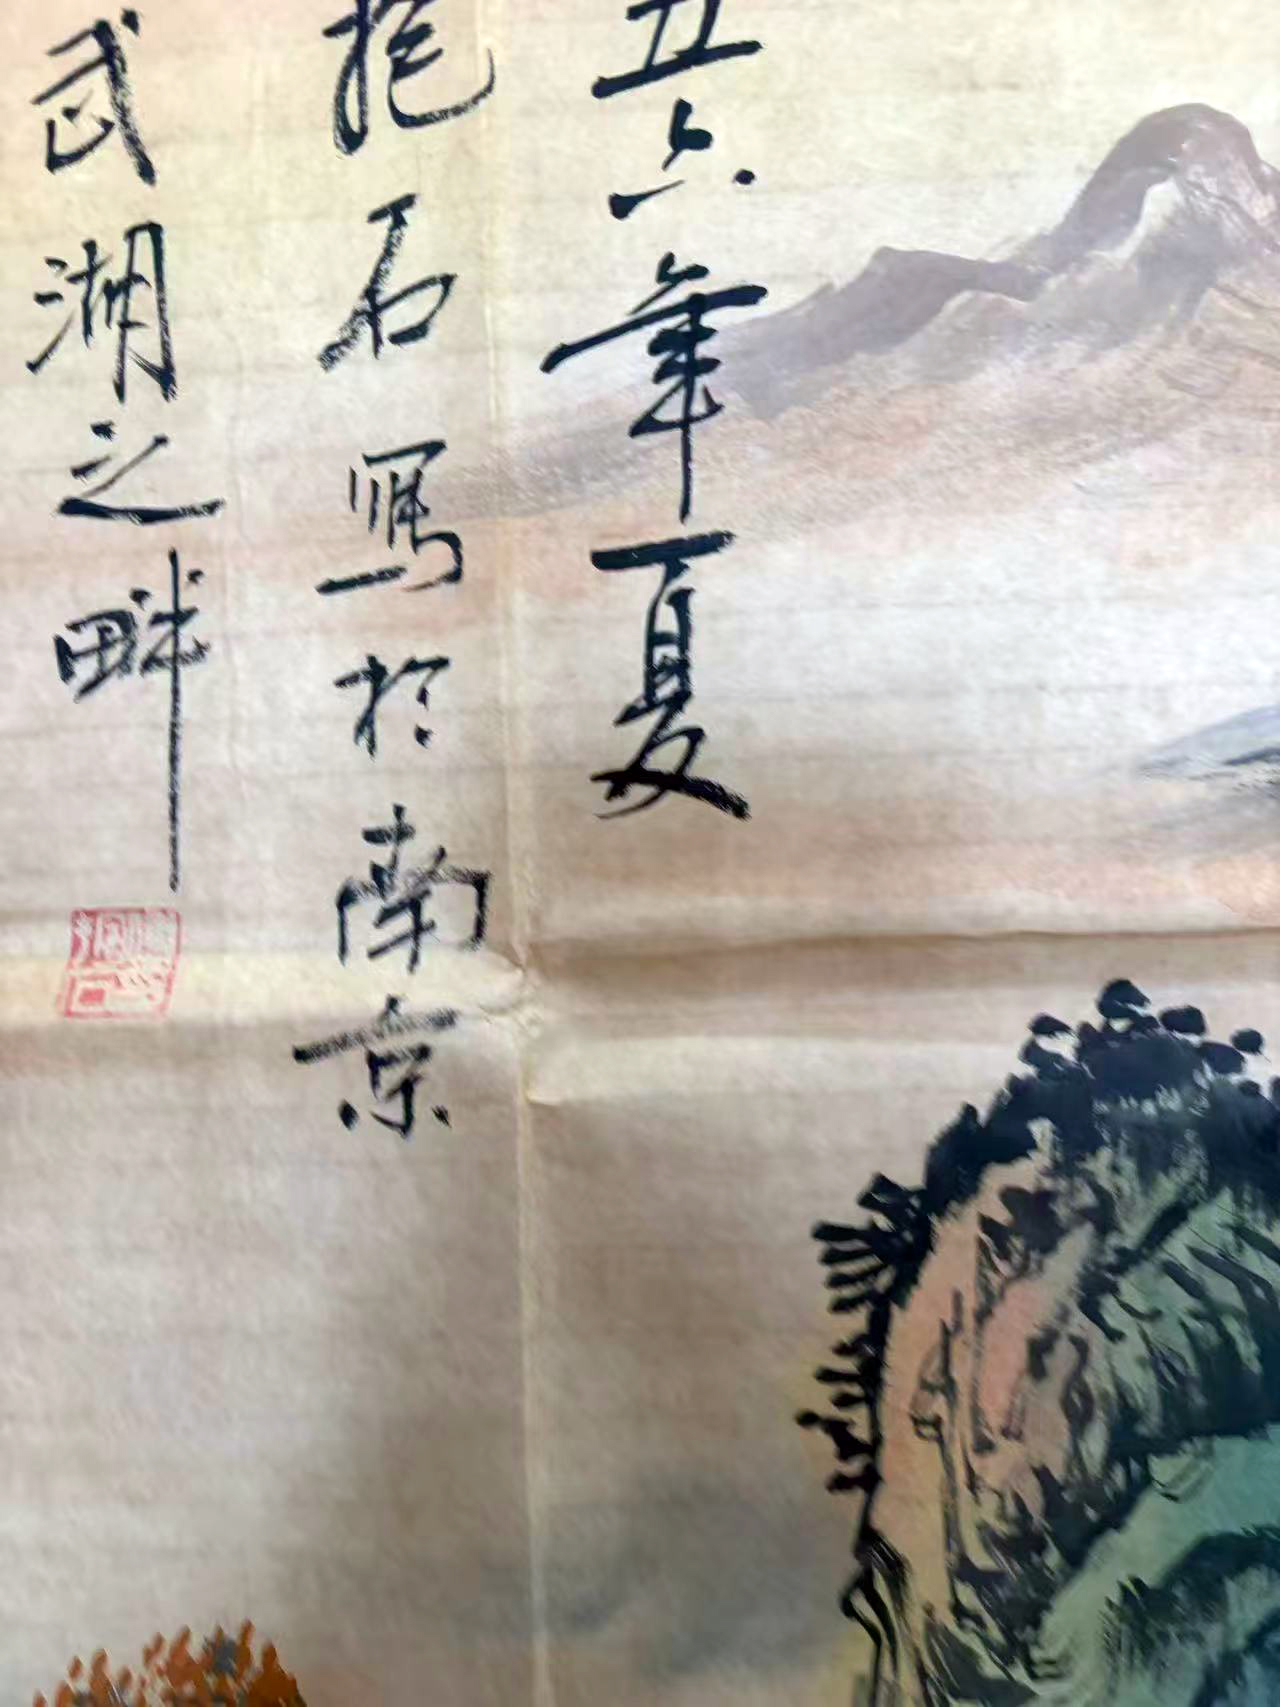 五六年夏
抱石写於南京
武湖之畔